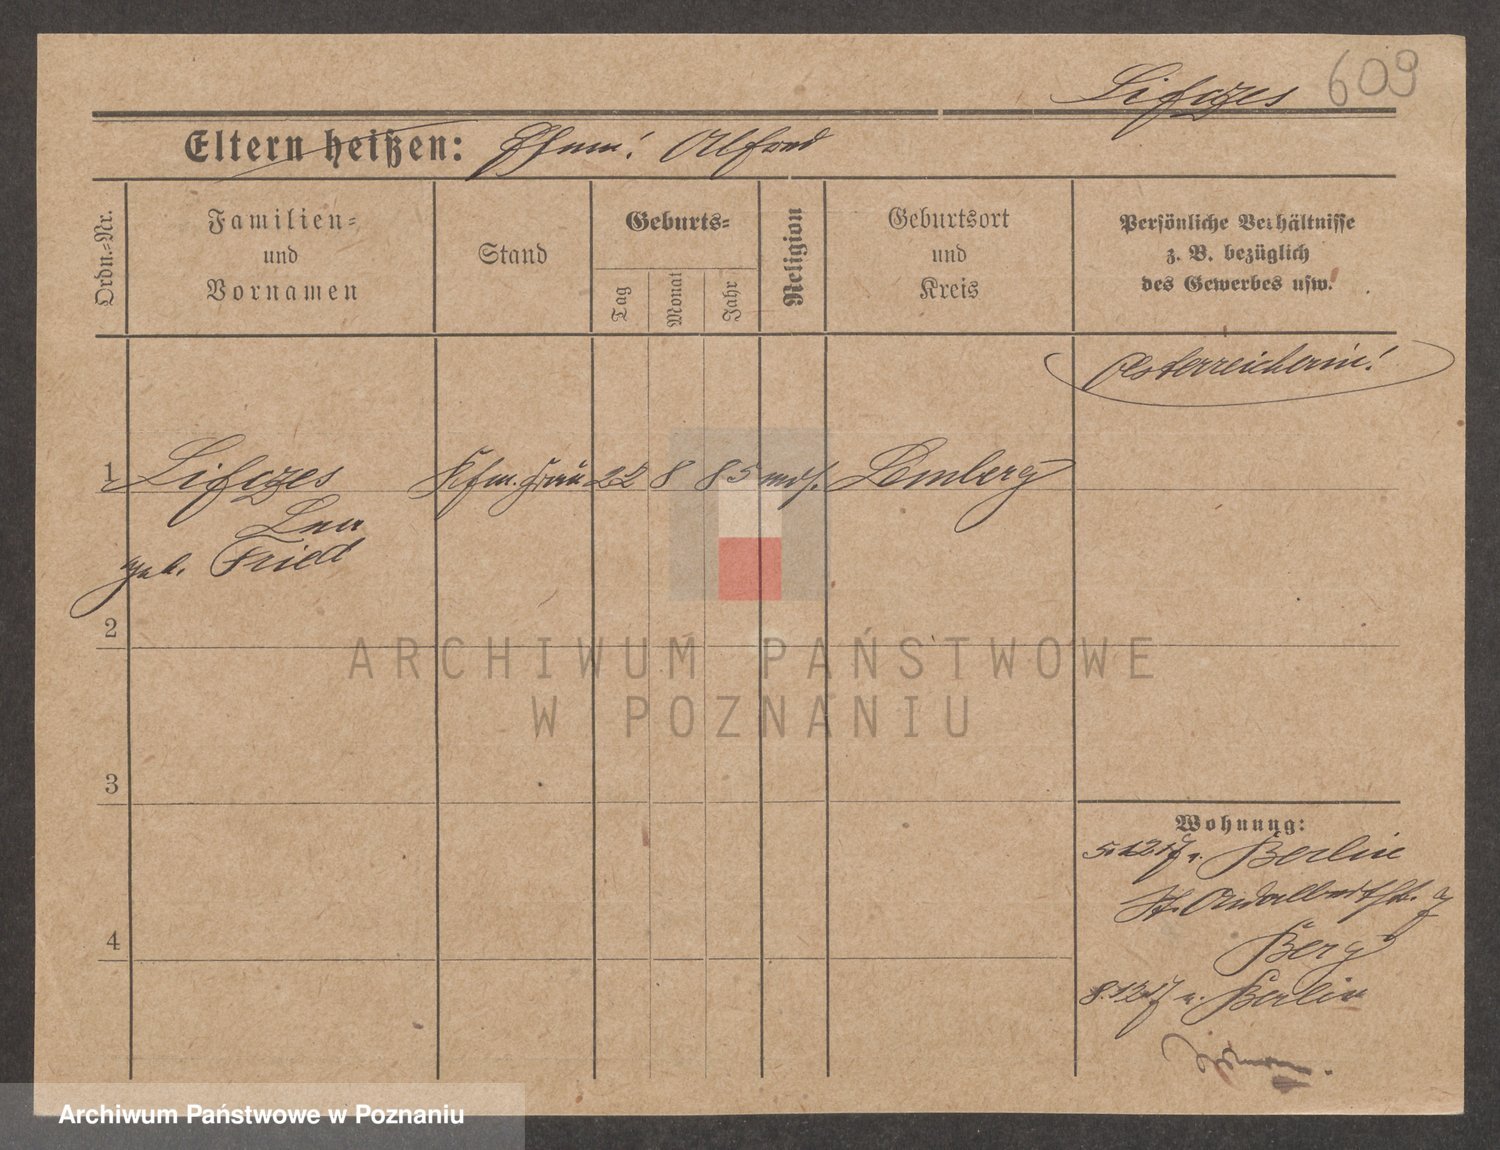 Lifczes 609
Eltern heißen: Ehem! Alfred
Ordn.-Nr.
Familien-
und
Vornamen
Stand
Geburts-
Tag
Monat
Jahr
Religion
Geburtsort
und
Kreis
Persönliche Verhältnisse
z. B. bezüglich
des Gewerbes usw.
Oesterreicherin!
1 Lifczes Kfm. Frau 22 8 85 mos. Lemberg
Lea
geb. Fried
2
3
4
Wohnung:
5.12.17 v. Berlin
St. Adalbertstr. 7
Berg
8.12.17 n. Berlin
ARCHIWUM PAŃSTWOWE
W POZNANIU
Archiwum Państwowe w Poznaniu